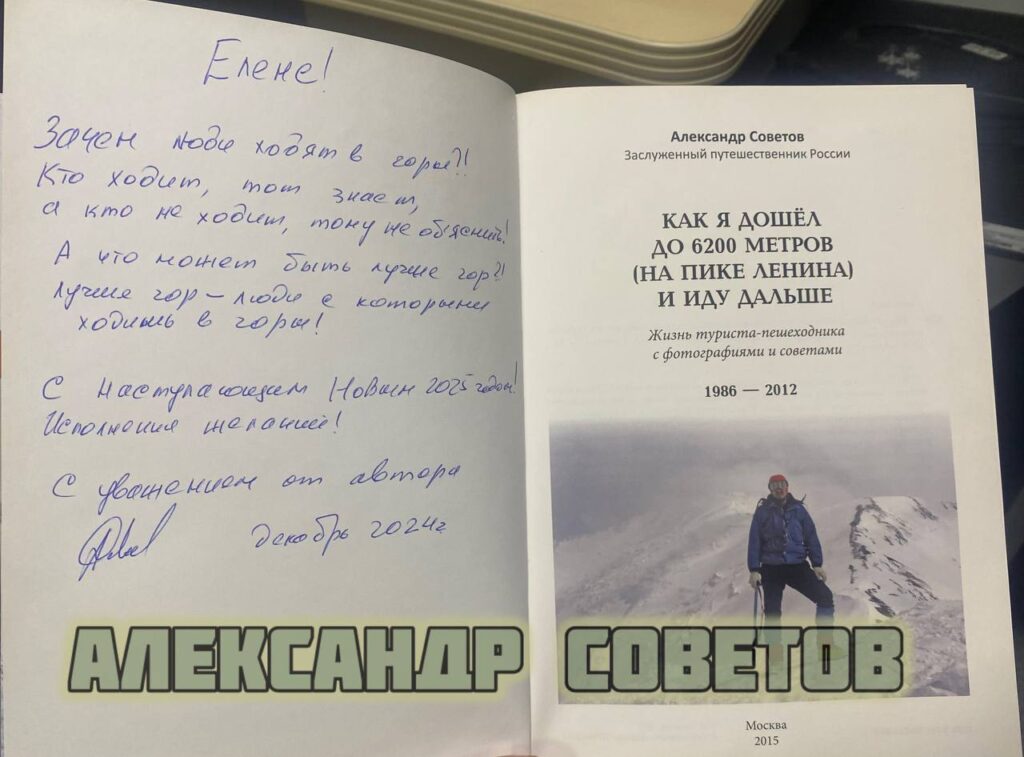 Елене!
Зачем люди ходят в горы?!
Кто ходит, тот знает,
а кто не ходит, тому не объяснить!
А что может быть лучше гор?!
Лучше гор – люди с которыми
ходишь в горы!
С наступающим Новым 2025 годом!
Исполнения желаний!
С уважением от автора
декабрь 2024г
Александр Советов
Заслуженный путешественник России
КАК Я ДОШЁЛ
ДО 6200 МЕТРОВ
(НА ПИКЕ ЛЕНИНА)
И ИДУ ДАЛЬШЕ
Жизнь туриста-пешеходника
с фотографиями и советами
1986 — 2012
Москва
2015
АЛЕКСАНДР СОВЕТОВ